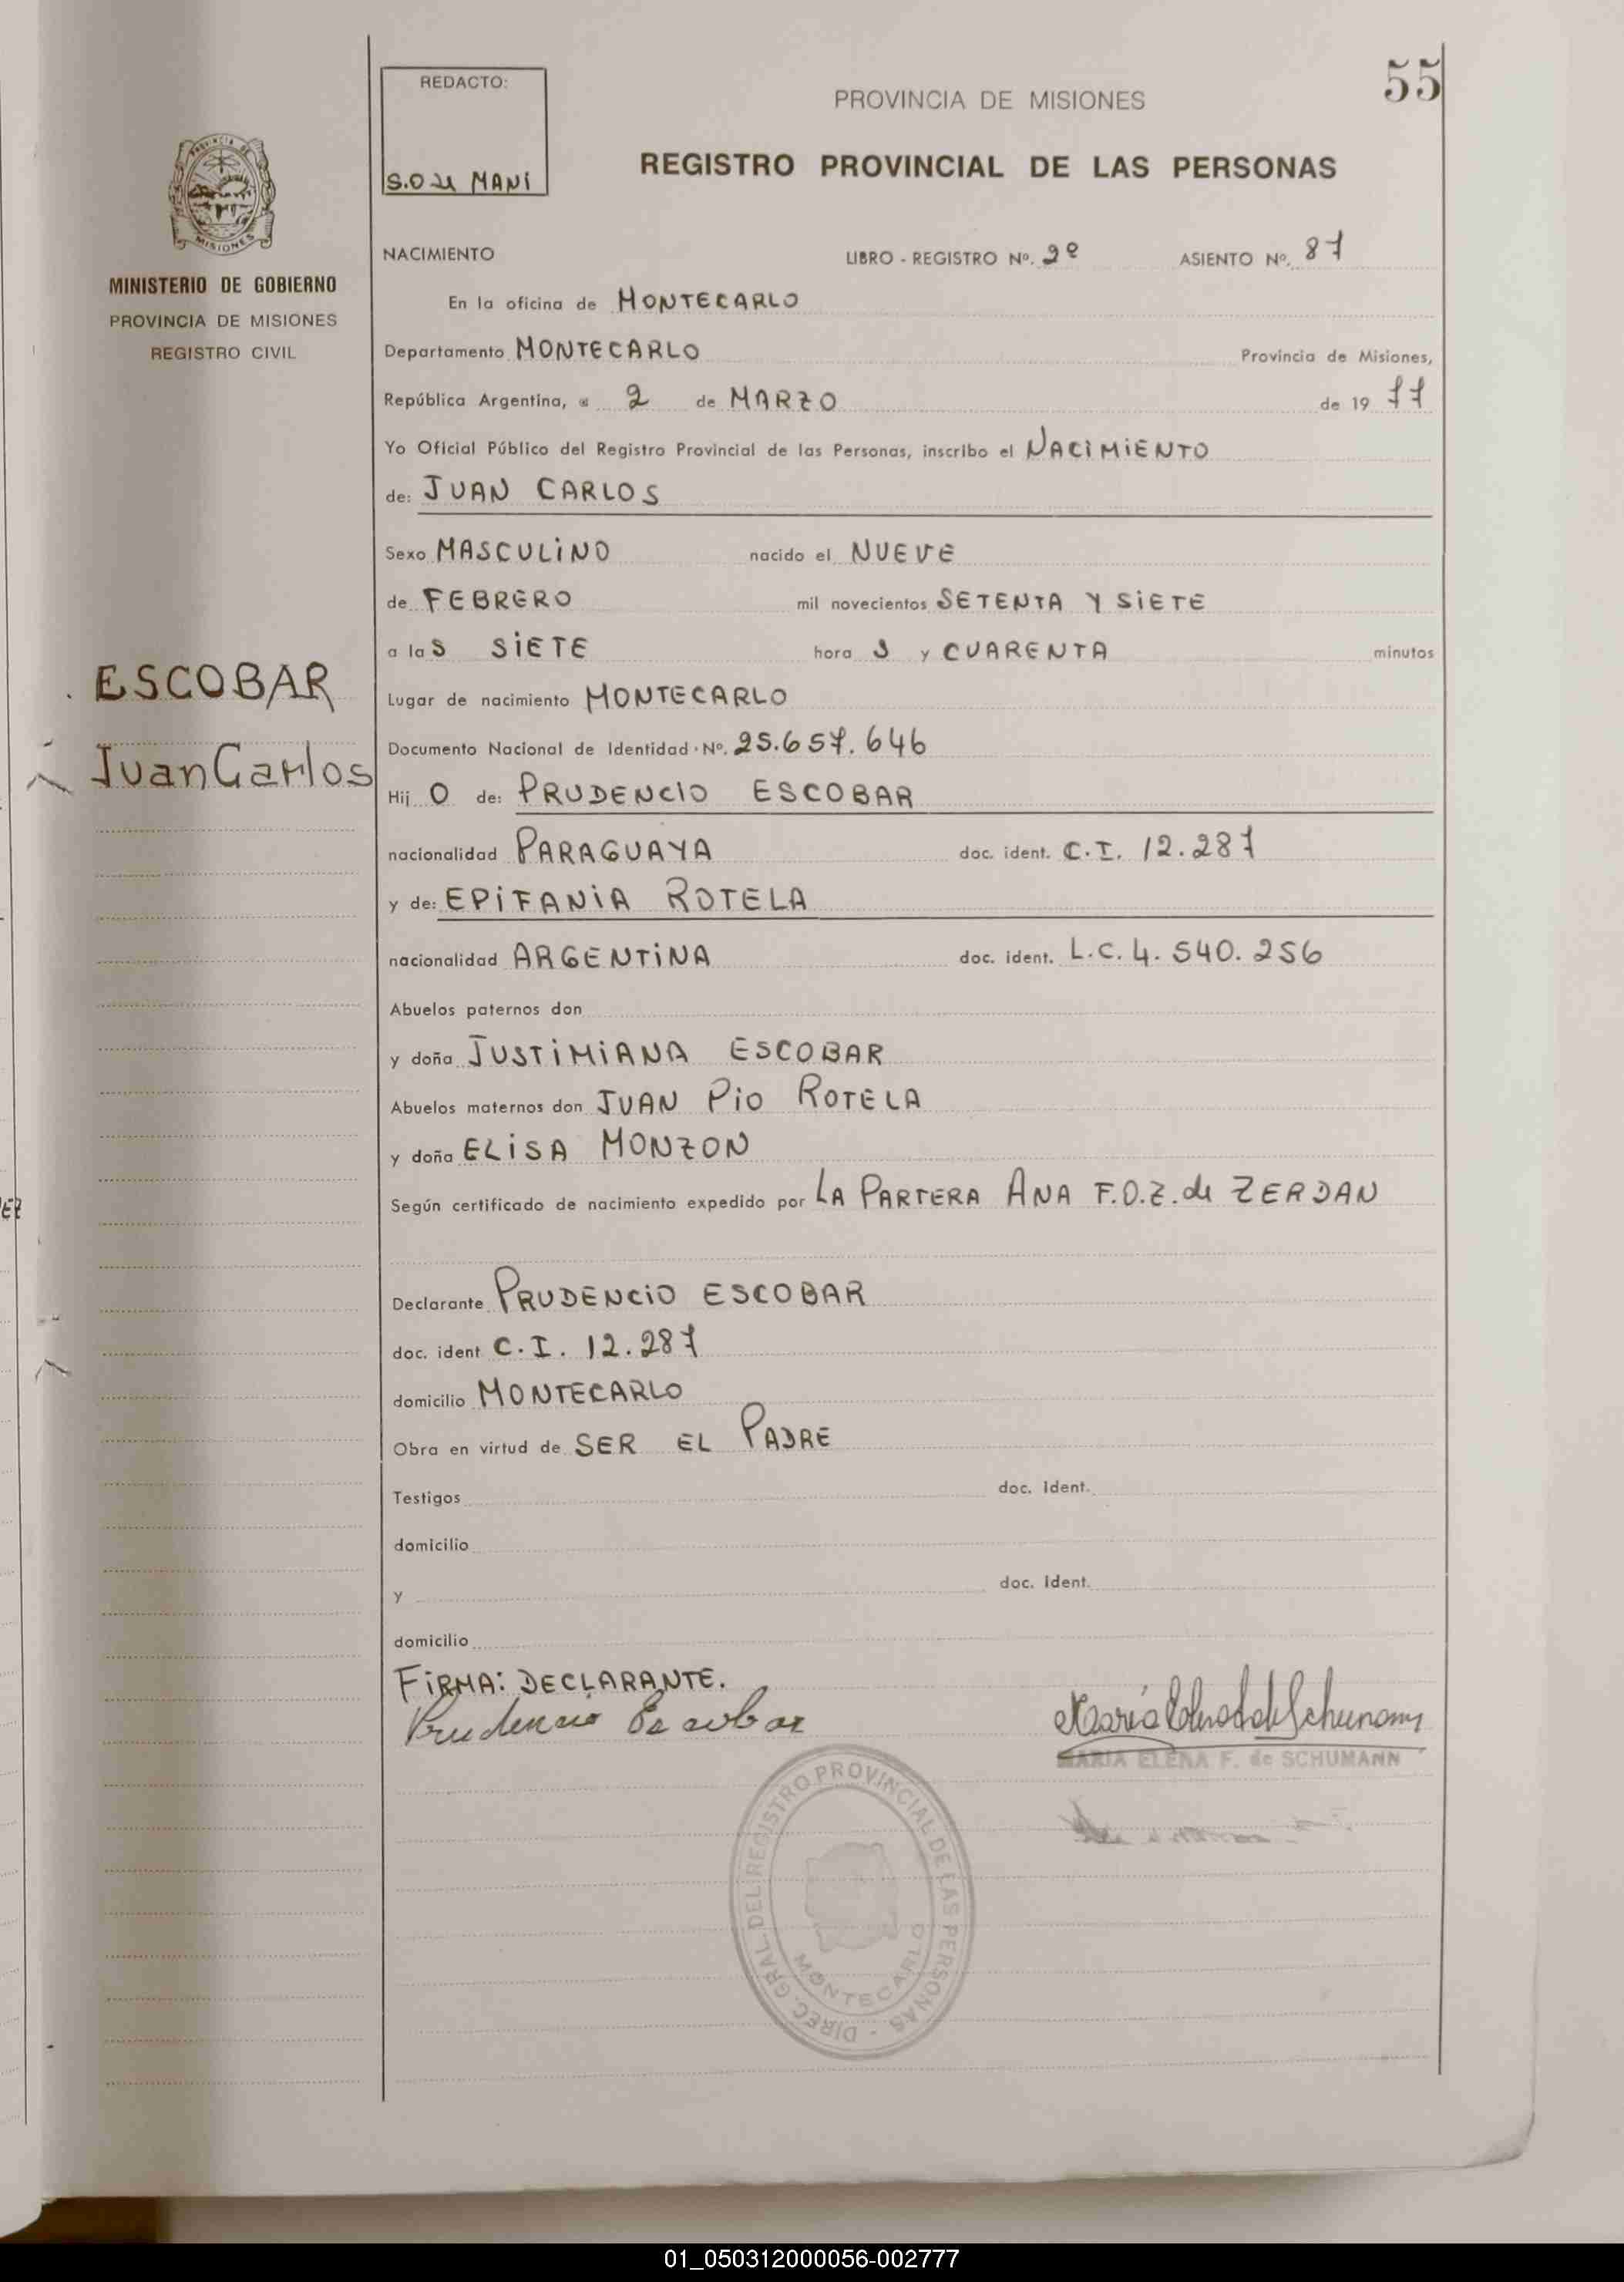 55
REDACTO:
PROVINCIA DE MISIONES
REGISTRO PROVINCIAL DE LAS PERSONAS
MINISTERIO DE GOBIERNO
PROVINCIA DE MISIONES
REGISTRO CIVIL
NACIMIENTO LIBRO - REGISTRO Nº. 2º ASIENTO Nº. 87
En la oficina de MONTECARLO
Departamento MONTECARLO Provincia de Misiones,
República Argentina, a 2 de MARZO de 19 77
Yo Oficial Público del Registro Provincial de las Personas, inscribo el NACIMIENTO
de: JUAN CARLOS
Sexo MASCULINO nacido el NUEVE
de FEBRERO mil novecientos SETENTA Y SIETE
a las SIETE hora S y CUARENTA minutos
ESCOBAR
Juan Carlos
Lugar de nacimiento MONTECARLO
Documento Nacional de Identidad · Nº. 25.657.646
Hij O de: PRUDENCIO ESCOBAR
nacionalidad PARAGUAYA doc. ident. C.I. 12.287
y de: EPIFANIA ROTELA
nacionalidad ARGENTINA doc. ident. L.C. 4.540.256
Abuelos paternos don
y doña JUSTIMIANA ESCOBAR
Abuelos maternos don JUAN PIO ROTELA
y doña ELISA MONZON
Según certificado de nacimiento expedido por LA PARTERA ANA F.O.Z. de ZERDAN
Declarante PRUDENCIO ESCOBAR
doc. ident C.I. 12.287
domicilio MONTECARLO
Obra en virtud de SER EL PADRE
Testigos doc. ident.
domicilio
y doc. ident.
domicilio
FIRMA: DECLARANTE.
Prudencio Escobar
MARIA ELENA F. de SCHUMANN
DIREC. GRAL. DEL REGISTRO PROVINCIAL DE LAS PERSONAS -
MONTECARLO
MISIONES
01_050312000056-002777